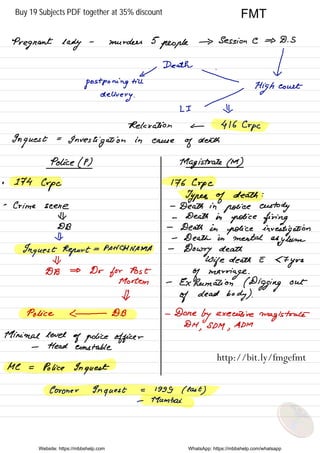 Buy 19 Subjects PDF together at 35% discount
FMT
Pregnant lady - murders 5 people → Session C ⇒ D.S
Death
postponing till
delivery.
High court
LI ⇓
Relaxation ← 416 Crpc
Inquest = Investigation in cause of death
Police (P)
Magistrate (M)
• 174 Crpc
176 Crpc
Types of death:
- Crime scene
- Death in police custody
⇓
- Death in police firing
DB
- Death in police investigation
⇓
- Death in mental asylum
Inquest Report = PANCHNAMA
- Dowry death
⇓
Wife death E <7yrs
of marriage.
DB ⇒ Dr for Post
Mortem
- Exhumation (Digging out
of dead body)
⇓
Police ← DB
- Done by executive magistrate
DM, SDM, ADM
Minimal level of police officer
- Head constable
http://bit.ly/fmgefmt
MC = Police Inquest
Coroner Inquest = 1999 (last)
- Mumbai
Website: https://mbbshelp.com
WhatsApp: https://mbbshelp.com/whatsapp